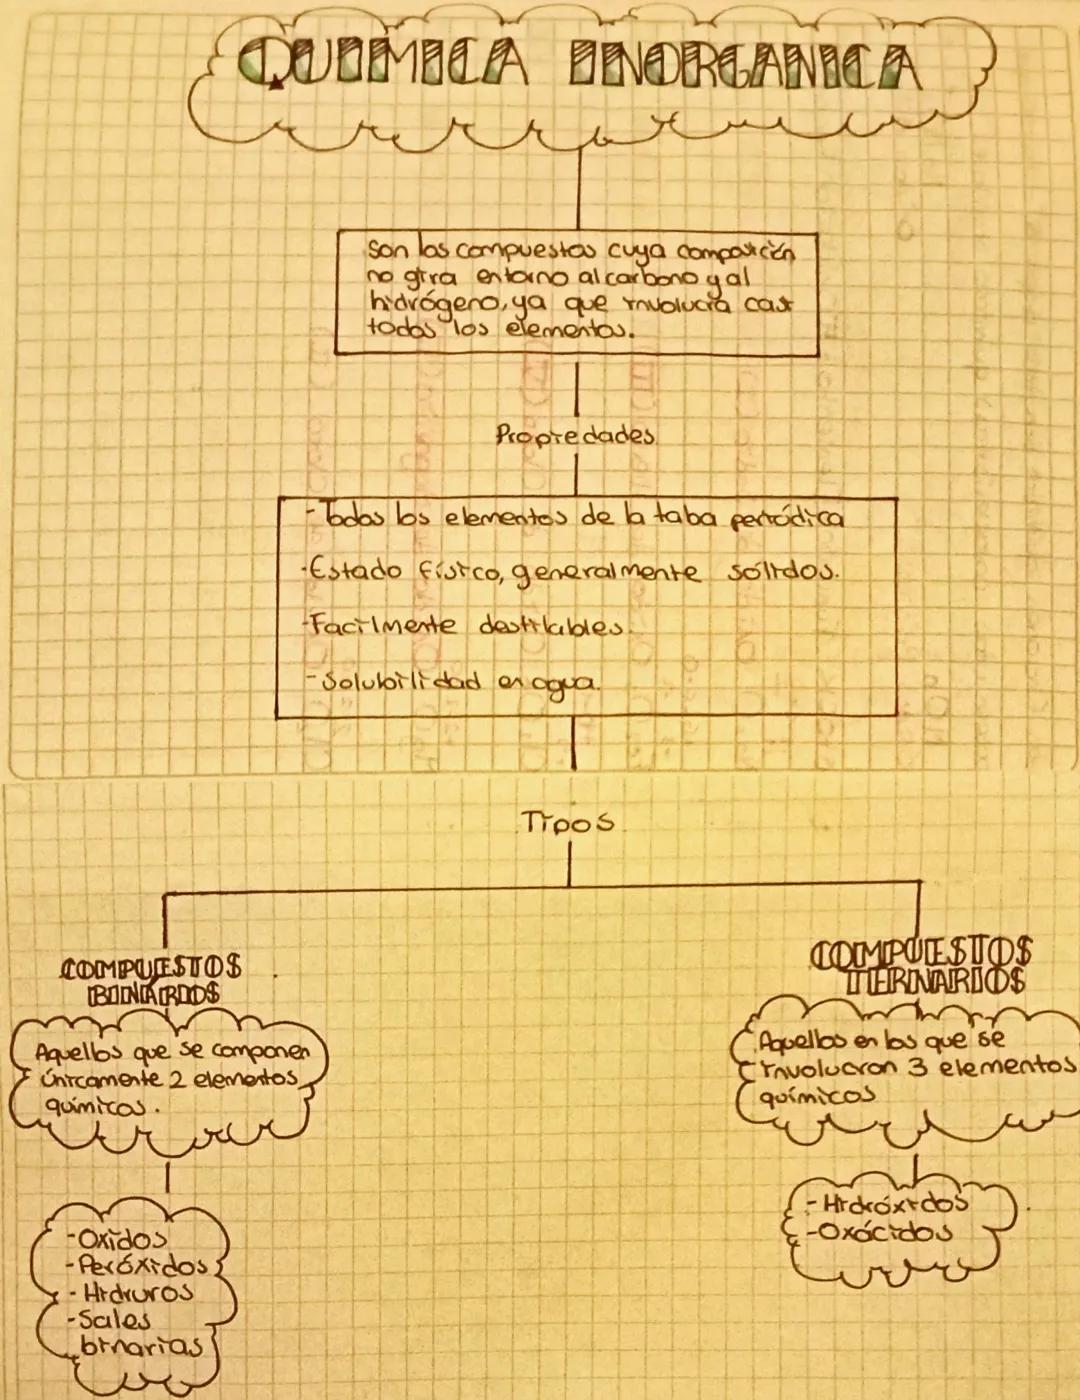 QUIMICA INORGANICA
Son los compuestos cuya composición
no gira entorno al carbono y al
hidrógeno, ya que involucra casi
todos los elementos.
Propiedades
- Todos los elementos de la taba periódica
- Estado físico, generalmente sólidos.
- Facilmente destilables.
- Solubilidad en agua.
Tipos
COMPUESTOS
BINARIOS
Aquellos que se componen
únicamente 2 elementos
químicos.
- Oxidos
- Peróxidos
- Hidruros
- Sales
binarias
COMPUESTOS
TERNARIOS
Aquellos en los que se
involucran 3 elementos
químicos
- Hidróxidos
- Oxácidos